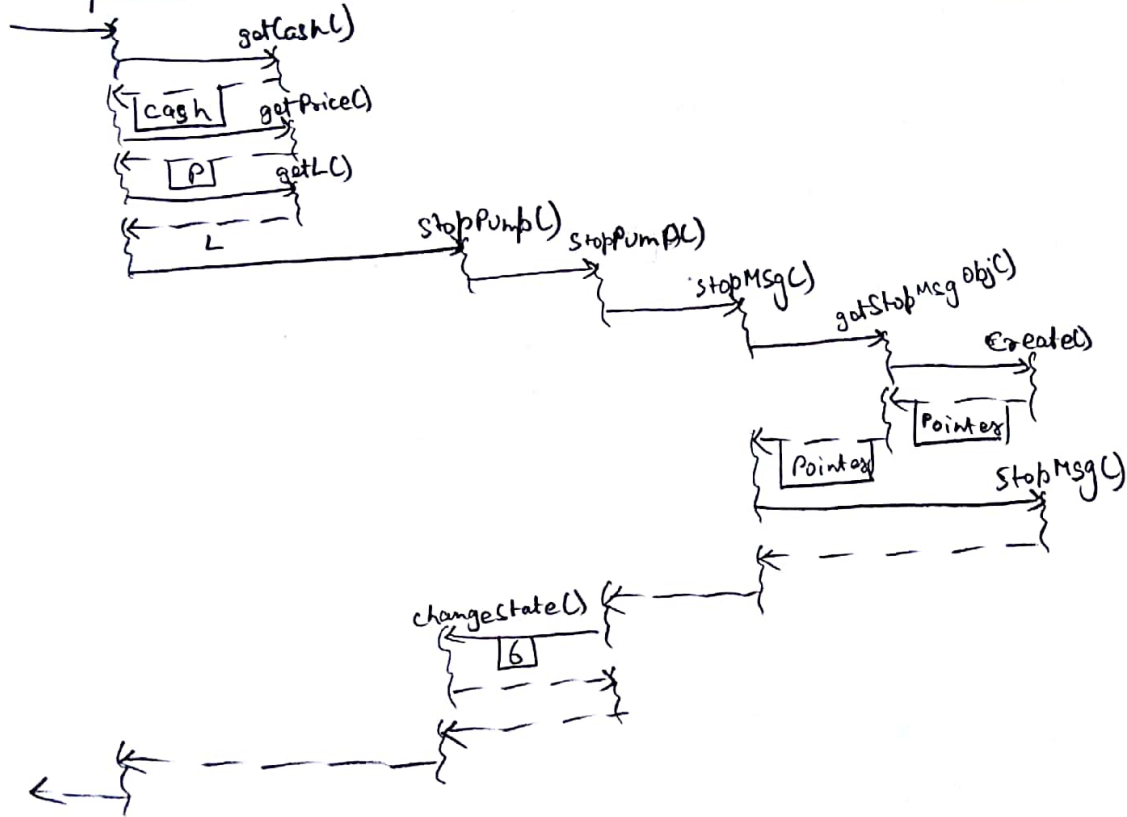 getCash()
Cash
getPrice()
P
getL()
L
StopPump()
StopPump()
stopMsg()
getStopMsgObj()
Create()
Pointer
Pointer
StopMsg()
changeState()
6